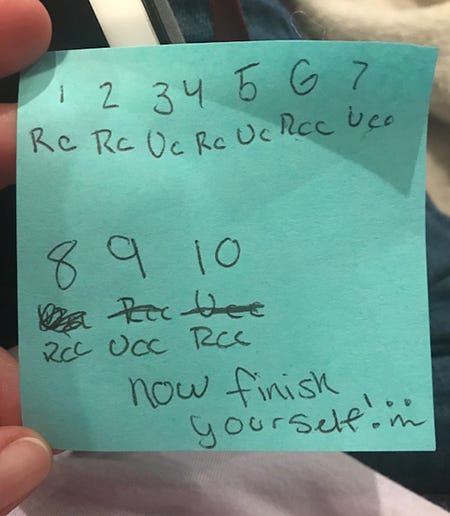 1 2 3 4 5 6 7
Rc Rc Uc Rc Uc Rcc Ucc
8 9 10
Rcc Ucc
Rcc Ucc Rcc
now finish
yourself!